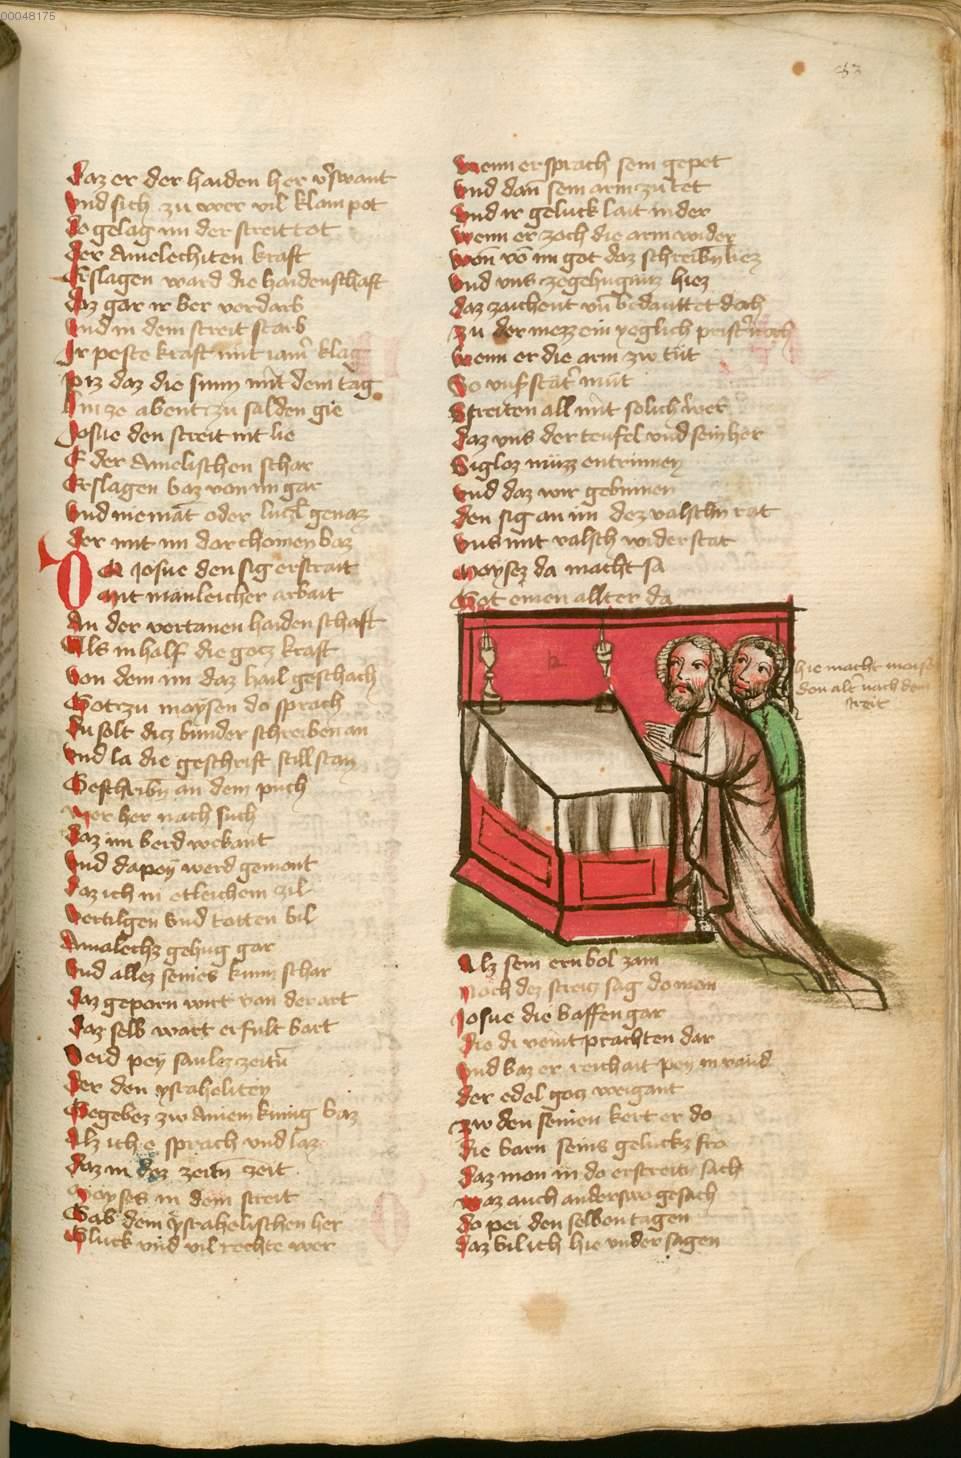 00048175
63
daz er der haiden her v̉swant
vnd sich zu wer vil klain pot
do gelag im der streit tot
der Amelechiten kraft
Erslagen ward die haidenschaft
daz gar ir her verdarb
vnd in dem streit starb
Ir peste kraft mit iam̉ klag
piz daz die sunn mit dem tag
hin ze abent zu salden gie
Josue den streit nit lie
E der Amelischen schar
Erslagen baz von im gar
vnd niemāt oder luczl genaz
der mit im dar chomen baz
Do Josue den sig erstrait
mit manleicher arbait
An der vertanen haidenschaft
Als in half die gotz kraft
von dem im daz hail geschach
Got zu moysen do sprach
du solt ditz bunder schreiben an
vnd la die geschrift still stan
Geschribn̄ an dem puch
wer her nach such
daz im berd wekant
vnd dapey werd gemont
daz ich in etleichem zil
vertilgen vnd totten bil
Amalechz gehug gar
vnd allez seines kunn schar
daz geporn wirt van der art
daz selb wart erfult bart
beid pey saulez zeitn̄
der den ysraheliten
Gegeben zw ainem kunig baz
Alz ich e sprach vnd laz
daz in dez zeitn̄ zeit
Moyses in dem streit
Gab dem ysrahelischen her
Gluck vnd vil rechte wer
wenn er sprach sein gepet
vnd dan̄ sein arm zu tet
vnd ir geluck lait nider
wenn er zoch die arm wider
von im got daz schreibn̄ hiez
vnd vns zegehugnuz hiez
daz zaichent vn̄ bedauttet doch
zu der mezz ein yeglich prist̉ noch
wenn er die arm zw tut
So
Streiten all mit solich̉ wer
daz vns der teufel vnd sein her
Sigloz muzz entrinnen
vnd daz wir gebinnen
den sig an im dez valschn̄ rat
vns mit valsch widerstat
Moysez da macht sa
Got einen allter da
hie macht moyses
den alt̉ nach dem
streit
Alz sein ern bol zam
Noch dez streitz sag do
Josue die baffen gar
die di veint prachten dar
vnd baz er reichait pey in vand
der edel gotz weigant
zw den seinen kert er do
die barn seins geluckz fro
daz man in do erstreitn̄ sach
waz auch anderswo geschach
do pei den selben tagen
daz bil ich hie vnder sagen